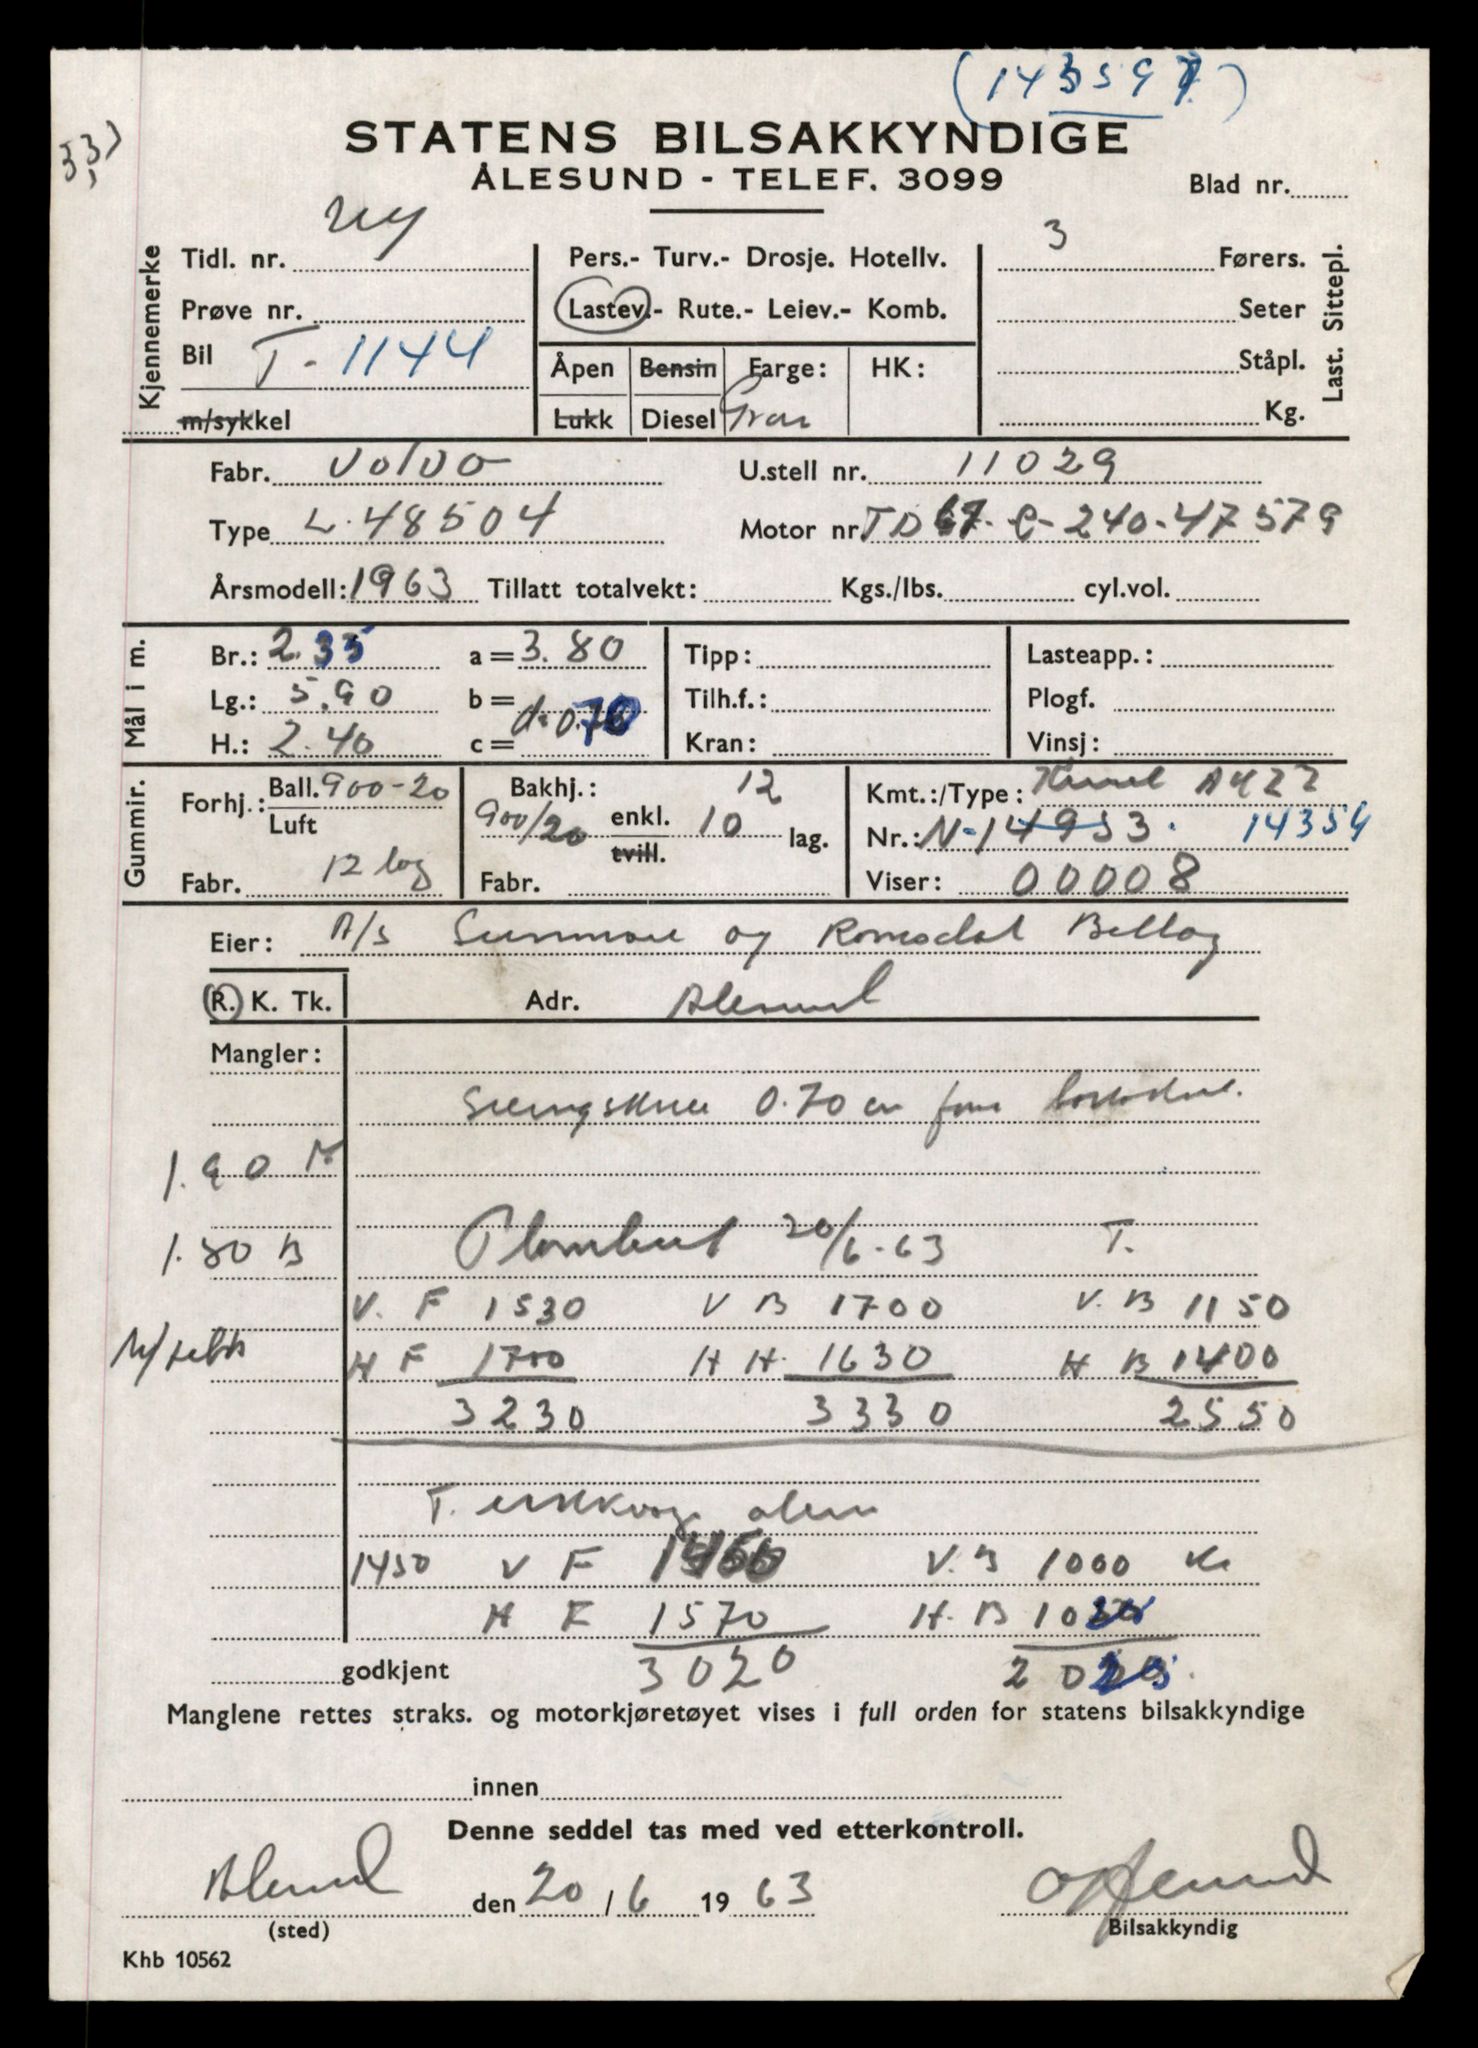 (143597)
533
STATENS BILSAKKYNDIGE
ÅLESUND - TELEF. 3099
Blad nr.
Kjennemerke
Tidl. nr. ny
Prøve nr.
Bil T-1144
m/sykkel
Pers.- Turv.- Drosje. Hotellv.
Lastev.- Rute.- Leiev.- Komb.
Åpen Bensin Farge: HK:
Lukk Diesel Grøn
3 Førers.
Seter
Ståpl.
Kg.
Last. Sittepl.
Fabr. Volvo U.stell nr. 11029
Type L.48504 Motor nr TD 67-C-240-47579
Årsmodell: 1963 Tillatt totalvekt: Kgs./lbs. cyl.vol.
Mål i m.
Br.: 2.35 a = 3.80 Tipp: Lasteapp.:
Lg.: 5.90 b = Tilh.f.: Plogf.
H.: 2.40 c = d=0.70 Kran: Vinsj:
Gummir.
Forhj.: Ball. 900-20
Luft
Fabr. 12 lag
Bakhj.: 12
900/20 enkl. 10 lag.
tvill.
Fabr.
Kmt.:/Type: Kienzle
Nr.: N-14953. 14359
Viser: 00008
Eier: A/s Sunnmøre og Romsdal Billag
(R.) K. Tk. Adr. Ålesund
Mangler:
Svingskive 0.70 en foran
1.90 F
1.80 B
Plombert 20/6-63 T.
V. F 1530 V B 1700 V. B 1150
H F 1700 H H. 1630 H B 1400
3230 3330 2550
T.
1450 V F 1450 V.B 1000 Kg
H F 1570 H. B 1020
godkjent 3020 2020
Manglene rettes straks. og motorkjøretøyet vises i full orden for statens bilsakkyndige
innen
Denne seddel tas med ved etterkontroll.
Ålesund den 20/6 1963
(sted) Bilsakkyndig
Khb 10562